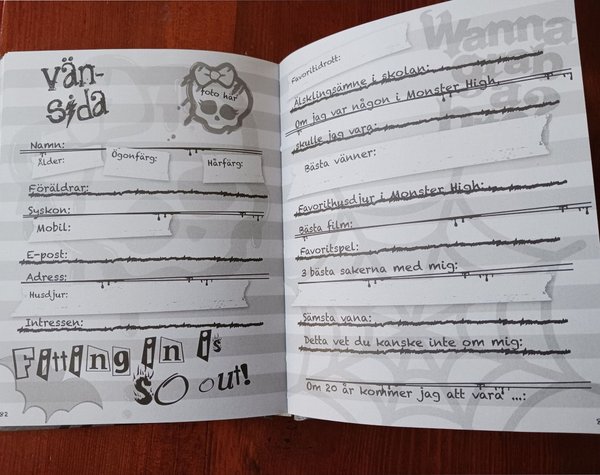 vän-
sida
foto här
Namn:
Ålder: Ögonfärg: Hårfärg:
Föräldrar:
Syskon:
Mobil:
E-post:
Adress:
Husdjur:
Intressen:
Fitting in is
so out!
82
Favoritidrott:
Älsklingsämne i skolan:
Om jag var någon i Monster High,
skulle jag vara:
Bästa vänner:
Favorithusdjur i Monster High:
Bästa film:
Favoritspel:
3 bästa sakerna med mig:
Sämsta vana:
Detta vet du kanske inte om mig:
Om 20 år kommer jag att vara ...:
Wanna